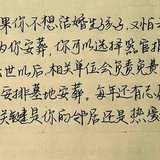 果你不想结婚生孩子,又怕
为你安葬,你可以选择器官捐
去世以后,相关单位会负责免费
安排墓地安葬。每年还有志
关键是你的邻居还是热爱